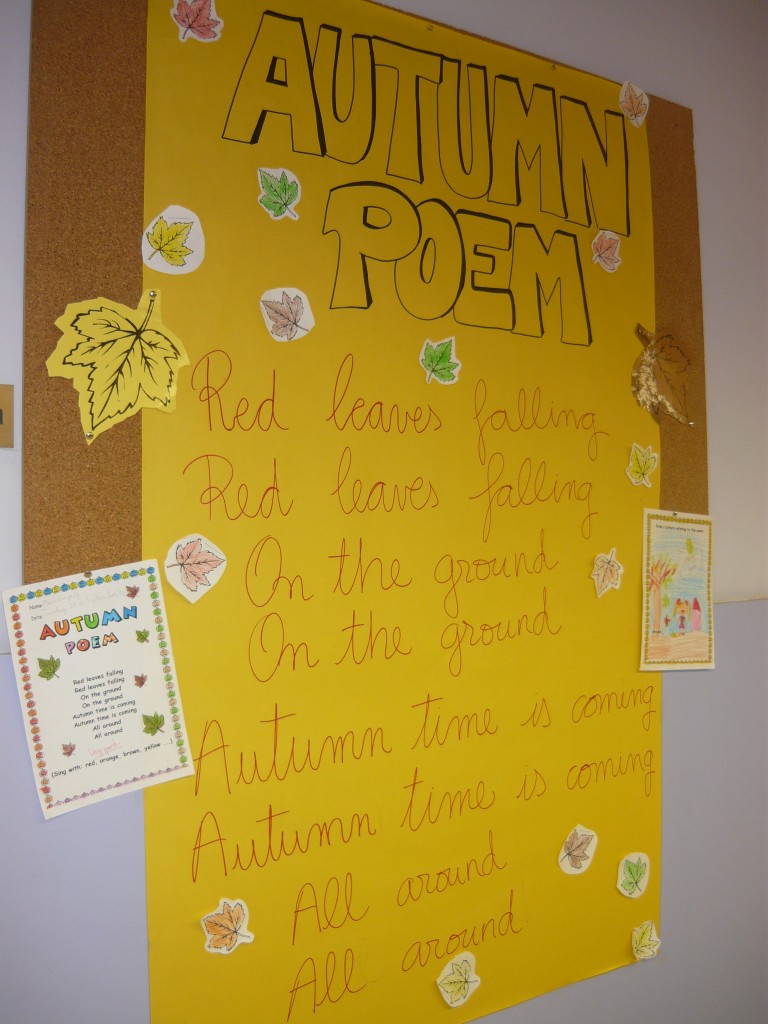 AUTUMN
POEM
Red leaves falling
Red leaves falling
On the ground
On the ground
Autumn time is coming
Autumn time is coming
All around
All around.
Name:
Date:
AUTUMN
POEM
Red leaves falling
Red leaves falling
On the ground
On the ground
Autumn time is coming
Autumn time is coming
All around
All around
Very good!
(Sing with: red, orange, brown, yellow ...)